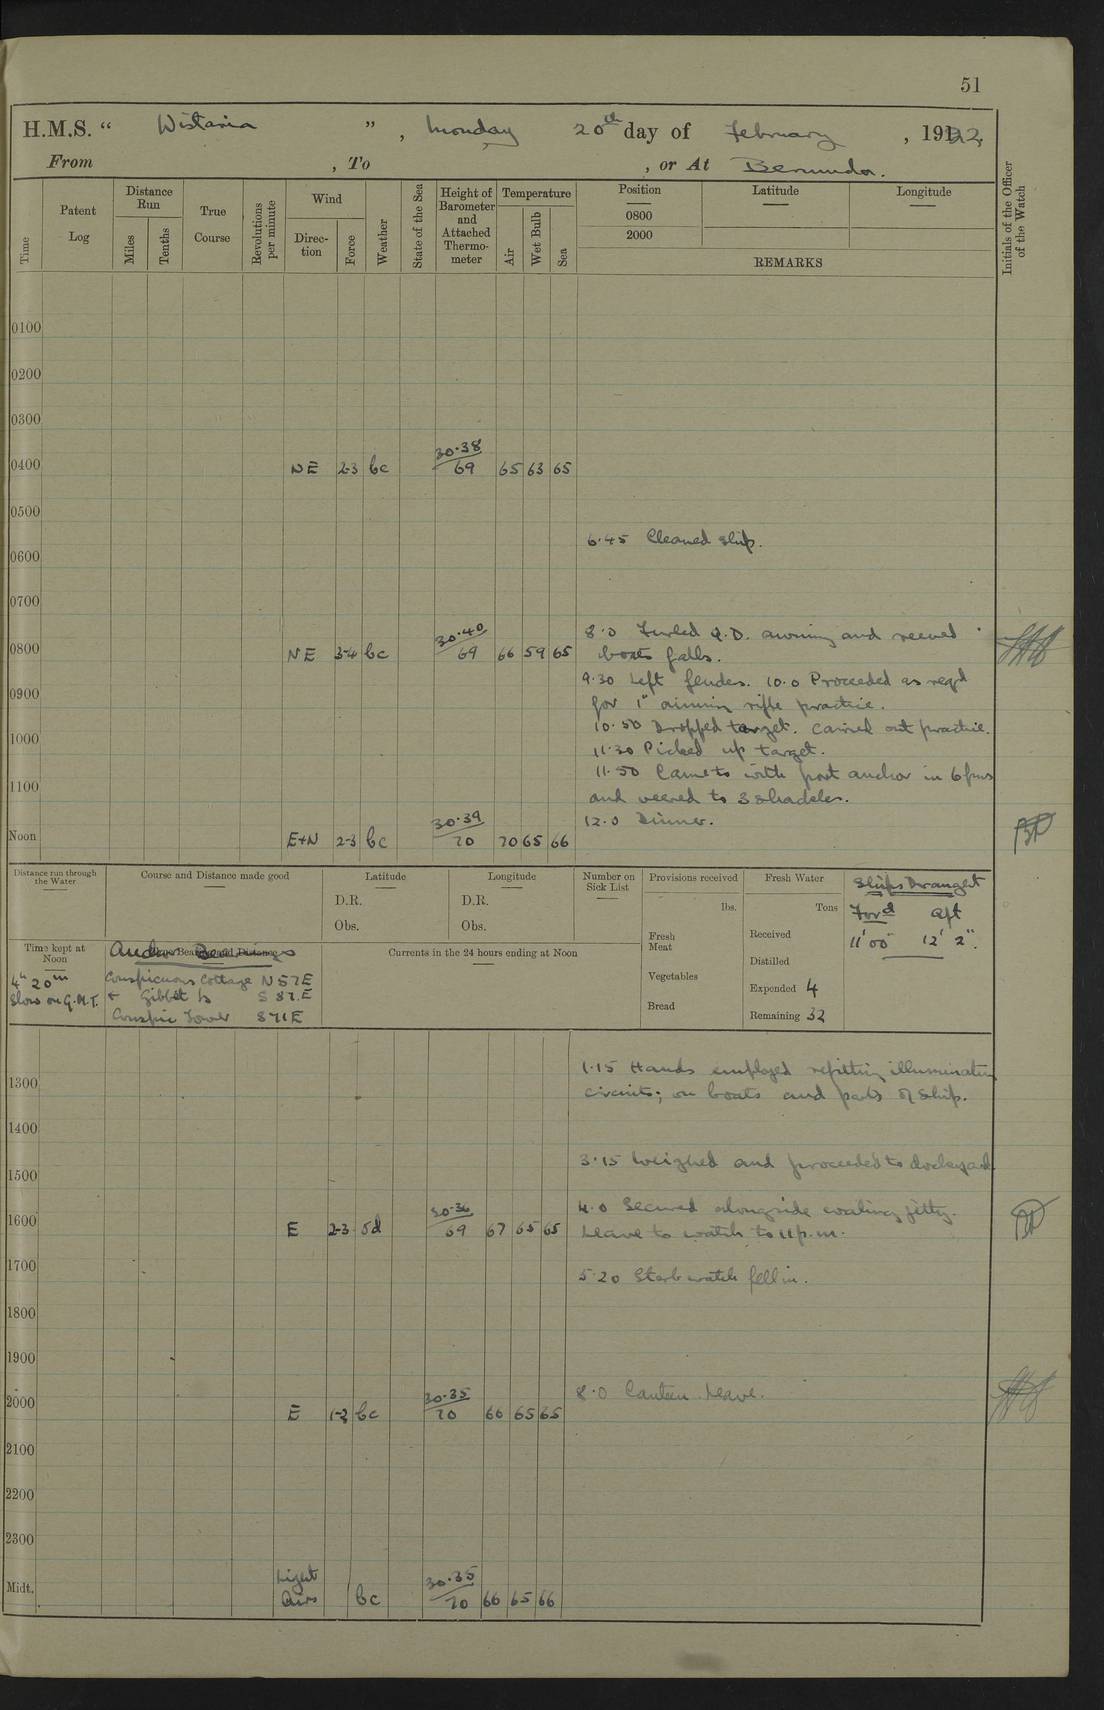 51
H.M.S. “ Wistaria ” , Monday 20th day of February , 1922.
From , To , or At Bermuda.
Time
Patent Log
Distance Run
Miles
Tenths
True Course
Revolutions per minute
Wind
Direction
Force
Weather
State of the Sea
Height of Barometer and Attached Thermometer
Temperature
Air
Wet Bulb
Sea
Position
0800
2000
Latitude
Longitude
REMARKS
Initials of the Officer of the Watch
0100
0200
0300
0400 NE 2-3 bc 30·38 69 65 63 65
0500
6·45 Cleaned ship.
0600
0700
8·0 Furled Q.D. awning and reeved
0800 NE 3-4 bc 30·40 69 66 59 65 boats falls.
9·30 Left fender. 10·0 Proceeded as reqd
0900
for 1" aiming rifle practice.
10·50 Dropped target. Carried out practice.
1000
11·30 Picked up target.
11·50 Came to with port anchor in 6 fms
1100
and veered to 3 shackles.
12·0 Dinner.
Noon E+N 2-3 bc 30·39 70 70 65 66
Distance run through the Water
Course and Distance made good
Latitude
D.R.
Obs.
Longitude
D.R.
Obs.
Number on Sick List
Provisions received
lbs.
Fresh Meat
Vegetables
Bread
Fresh Water
Tons
Received
Distilled
Expended 4
Remaining 32
Ships Draught
Ford Aft
11' 00" 12' 2".
Time kept at Noon
4h 20m
Slow on G.M.T.
Anchor Bearings
Conspicuous Cottage N 57 E
+ Gibbet Is S 87 E
Conspic Tower S 71 E
Currents in the 24 hours ending at Noon
1·15 Hands employed refitting illuminating
1300
circuits; on boats and parts of ship.
1400
3·15 Weighed and proceeded to dockyard
1500
4·0 Secured alongside coaling jetty.
1600 E 2-3 od 30·36 69 67 65 65
Leave to watch to 11 p.m.
1700
5·20 Starb watch fell in.
1800
1900
8·0 Canteen Leave.
2000 E 1-2 bc 30·35 70 66 65 65
2100
2200
2300
Midt. Light Airs bc 30·35 70 66 65 66